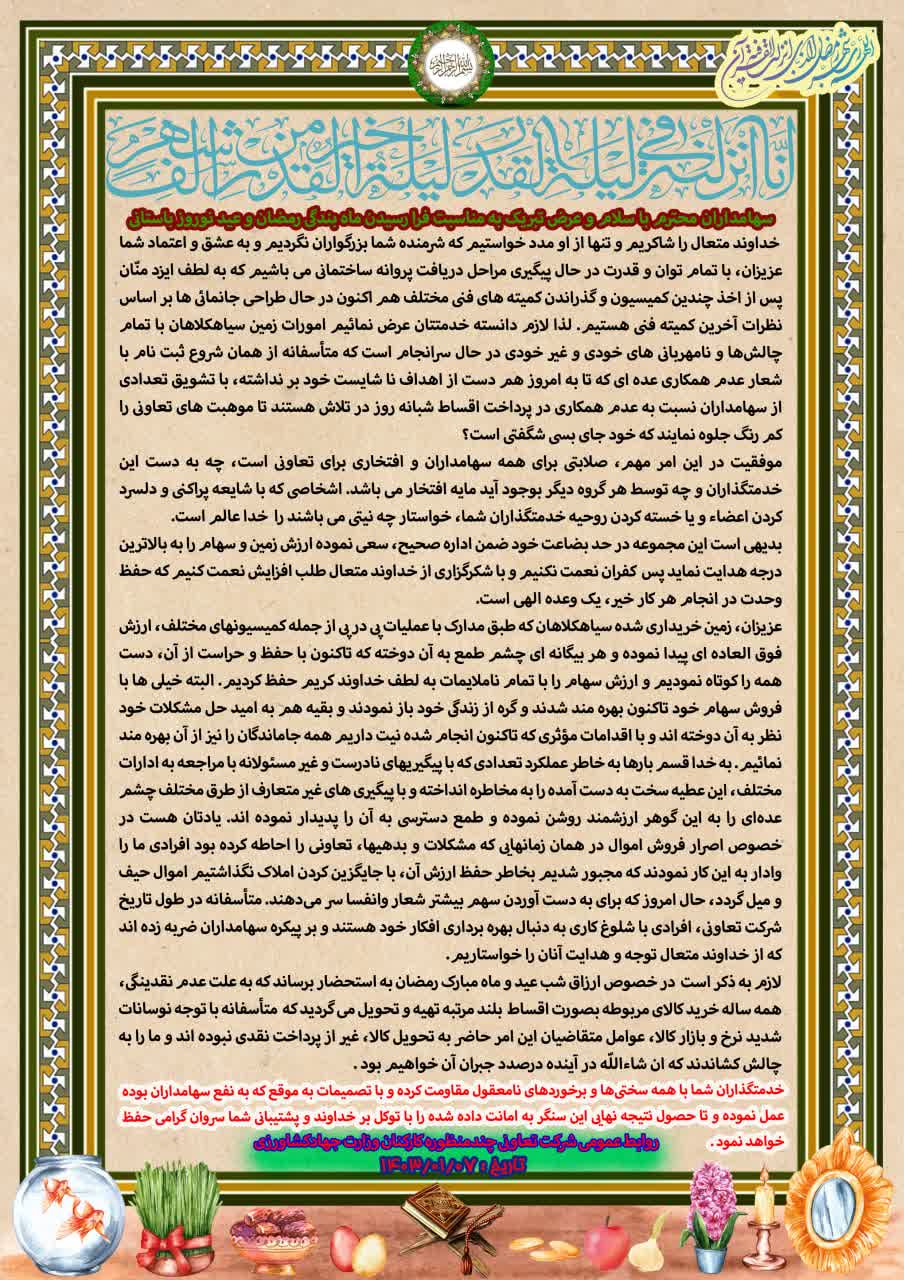 بسم الله الرحمن الرحیم
انا انزلنه فی لیلة القدر لیلة القدر خیر من الف شهر
سهامداران محترم با سلام و عرض تبریک به مناسبت فرا رسیدن ماه بندگی رمضان و عید نوروز باستانی
خداوند متعال را شاکریم و تنها از او مدد خواستیم که شرمنده شما بزرگواران نگردیم و به عشق و اعتماد شما
عزیزان، با تمام توان و قدرت در حال پیگیری مراحل دریافت پروانه ساختمانی می باشیم که به لطف ایزد منّان
پس از اخذ چندین کمیسیون و گذراندن کمیته های فنی مختلف هم اکنون در حال طراحی جانمائی ها بر اساس
نظرات آخرین کمیته فنی هستیم. لذا لازم دانسته خدمتتان عرض نمائیم امورات زمین سیاهکلاهان با تمام
چالش‌ها و نامهربانی های خودی و غیر خودی در حال سرانجام است که متأسفانه از همان شروع ثبت نام با
شعار عدم همکاری عده ای که تا به امروز هم دست از اهداف نا شایست خود بر نداشته، با تشویق تعدادی
از سهامداران نسبت به عدم همکاری در پرداخت اقساط شبانه روز در تلاش هستند تا موهبت های تعاونی را
کم رنگ جلوه نمایند که خود جای بسی شگفتی است؟
موفقیت در این امر مهم، صلابتی برای همه سهامداران و افتخاری برای تعاونی است، چه به دست این
خدمتگذاران و چه توسط هر گروه دیگر بوجود آید مایه افتخار می باشد. اشخاصی که با شایعه پراکنی و دلسرد
کردن اعضاء و یا خسته کردن روحیه خدمتگذاران شما، خواستار چه نیتی می باشند را خدا عالم است.
بدیهی است این مجموعه در حد بضاعت خود ضمن اداره صحیح، سعی نموده ارزش زمین و سهام را به بالاترین
درجه هدایت نماید پس کفران نعمت نکنیم و با شکرگزاری از خداوند متعال طلب افزایش نعمت کنیم که حفظ
وحدت در انجام هر کار خیر، یک وعده الهی است.
عزیزان، زمین خریداری شده سیاهکلاهان که طبق مدارک با عملیات پی در پی از جمله کمیسیونهای مختلف، ارزش
فوق العاده ای پیدا نموده و هر بیگانه ای چشم طمع به آن دوخته که تاکنون با حفظ و حراست از آن، دست
همه را کوتاه نمودیم و ارزش سهام را با تمام ناملایمات به لطف خداوند کریم حفظ کردیم. البته خیلی ها با
فروش سهام خود تاکنون بهره مند شدند و گره از زندگی خود باز نمودند و بقیه هم به امید حل مشکلات خود
نظر به آن دوخته اند و با اقدامات مؤثری که تاکنون انجام شده نیت داریم همه جاماندگان را نیز از آن بهره مند
نمائیم. به خدا قسم بارها به خاطر عملکرد تعدادی که با پیگیریهای نادرست و غیر مسئولانه با مراجعه به ادارات
مختلف، این عطیه سخت به دست آمده را به مخاطره انداخته و با پیگیری های غیر متعارف از طرق مختلف چشم
عده‌ای را به این گوهر ارزشمند روشن نموده و طمع دسترسی به آن را پدیدار نموده اند. یادتان هست در
خصوص اصرار فروش اموال در همان زمانهایی که مشکلات و بدهیها، تعاونی را احاطه کرده بود افرادی ما را
وادار به این کار نمودند که مجبور شدیم بخاطر حفظ ارزش آن، با جایگزین کردن املاک نگذاشتیم اموال حیف
و میل گردد، حال امروز که برای به دست آوردن سهم بیشتر شعار وانفسا سر می‌دهند. متأسفانه در طول تاریخ
شرکت تعاونی، افرادی با شلوغ کاری به دنبال بهره برداری افکار خود هستند و بر پیکره سهامداران ضربه زده اند
که از خداوند متعال توجه و هدایت آنان را خواستاریم.
لازم به ذکر است در خصوص ارزاق شب عید و ماه مبارک رمضان به استحضار برساند که به علت عدم نقدینگی،
همه ساله خرید کالای مربوطه بصورت اقساط بلند مرتبه تهیه و تحویل می گردید که متأسفانه با توجه نوسانات
شدید نرخ و بازار کالا، عوامل متقاضیان این امر حاضر به تحویل کالا، غیر از پرداخت نقدی نبوده اند و ما را به
چالش کشاندند که ان شاءالله در آینده درصدد جبران آن خواهیم بود.
خدمتگذاران شما با همه سختی‌ها و برخوردهای نامعقول مقاومت کرده و با تصمیمات به موقع که به نفع سهامداران بوده
عمل نموده و تا حصول نتیجه نهایی این سنگر به امانت داده شده را با توکل بر خداوند و پشتیبانی شما سروان گرامی حفظ
خواهد نمود.
روابط عمومی شرکت تعاونی چندمنظوره کارکنان وزارت جهادکشاورزی
تاریخ : ۱۴۰۳/۰۱/۰۷